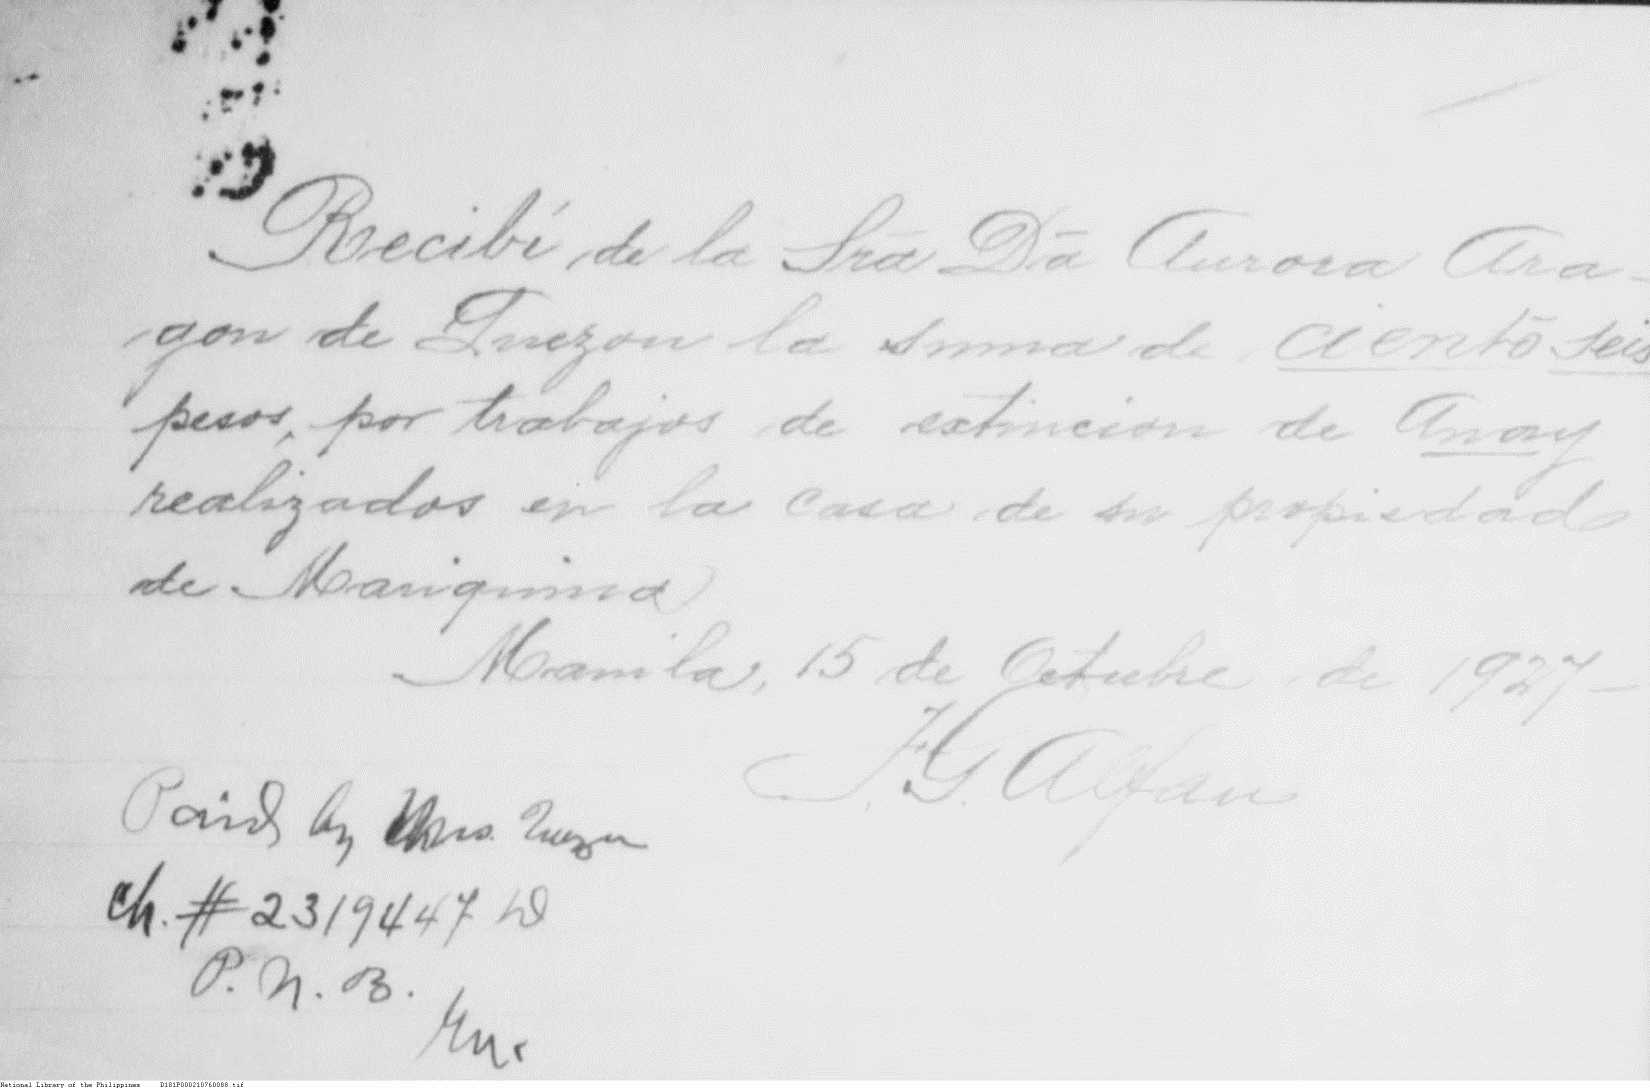 Recibí de la Sra Da Aurora Ara-
gon de Quezon la suma de ciento seis
pesos, por trabajos de extincion de Anay
realizados en la casa de su propiedad
de Mariquina
Manila, 15 de Octubre de 1927-
J. G. Alfau
Paid by Mrs. Quezon
Ch. # 2319447 D
P. N. B.
National Library of the Philippines D181P000210760088.tif